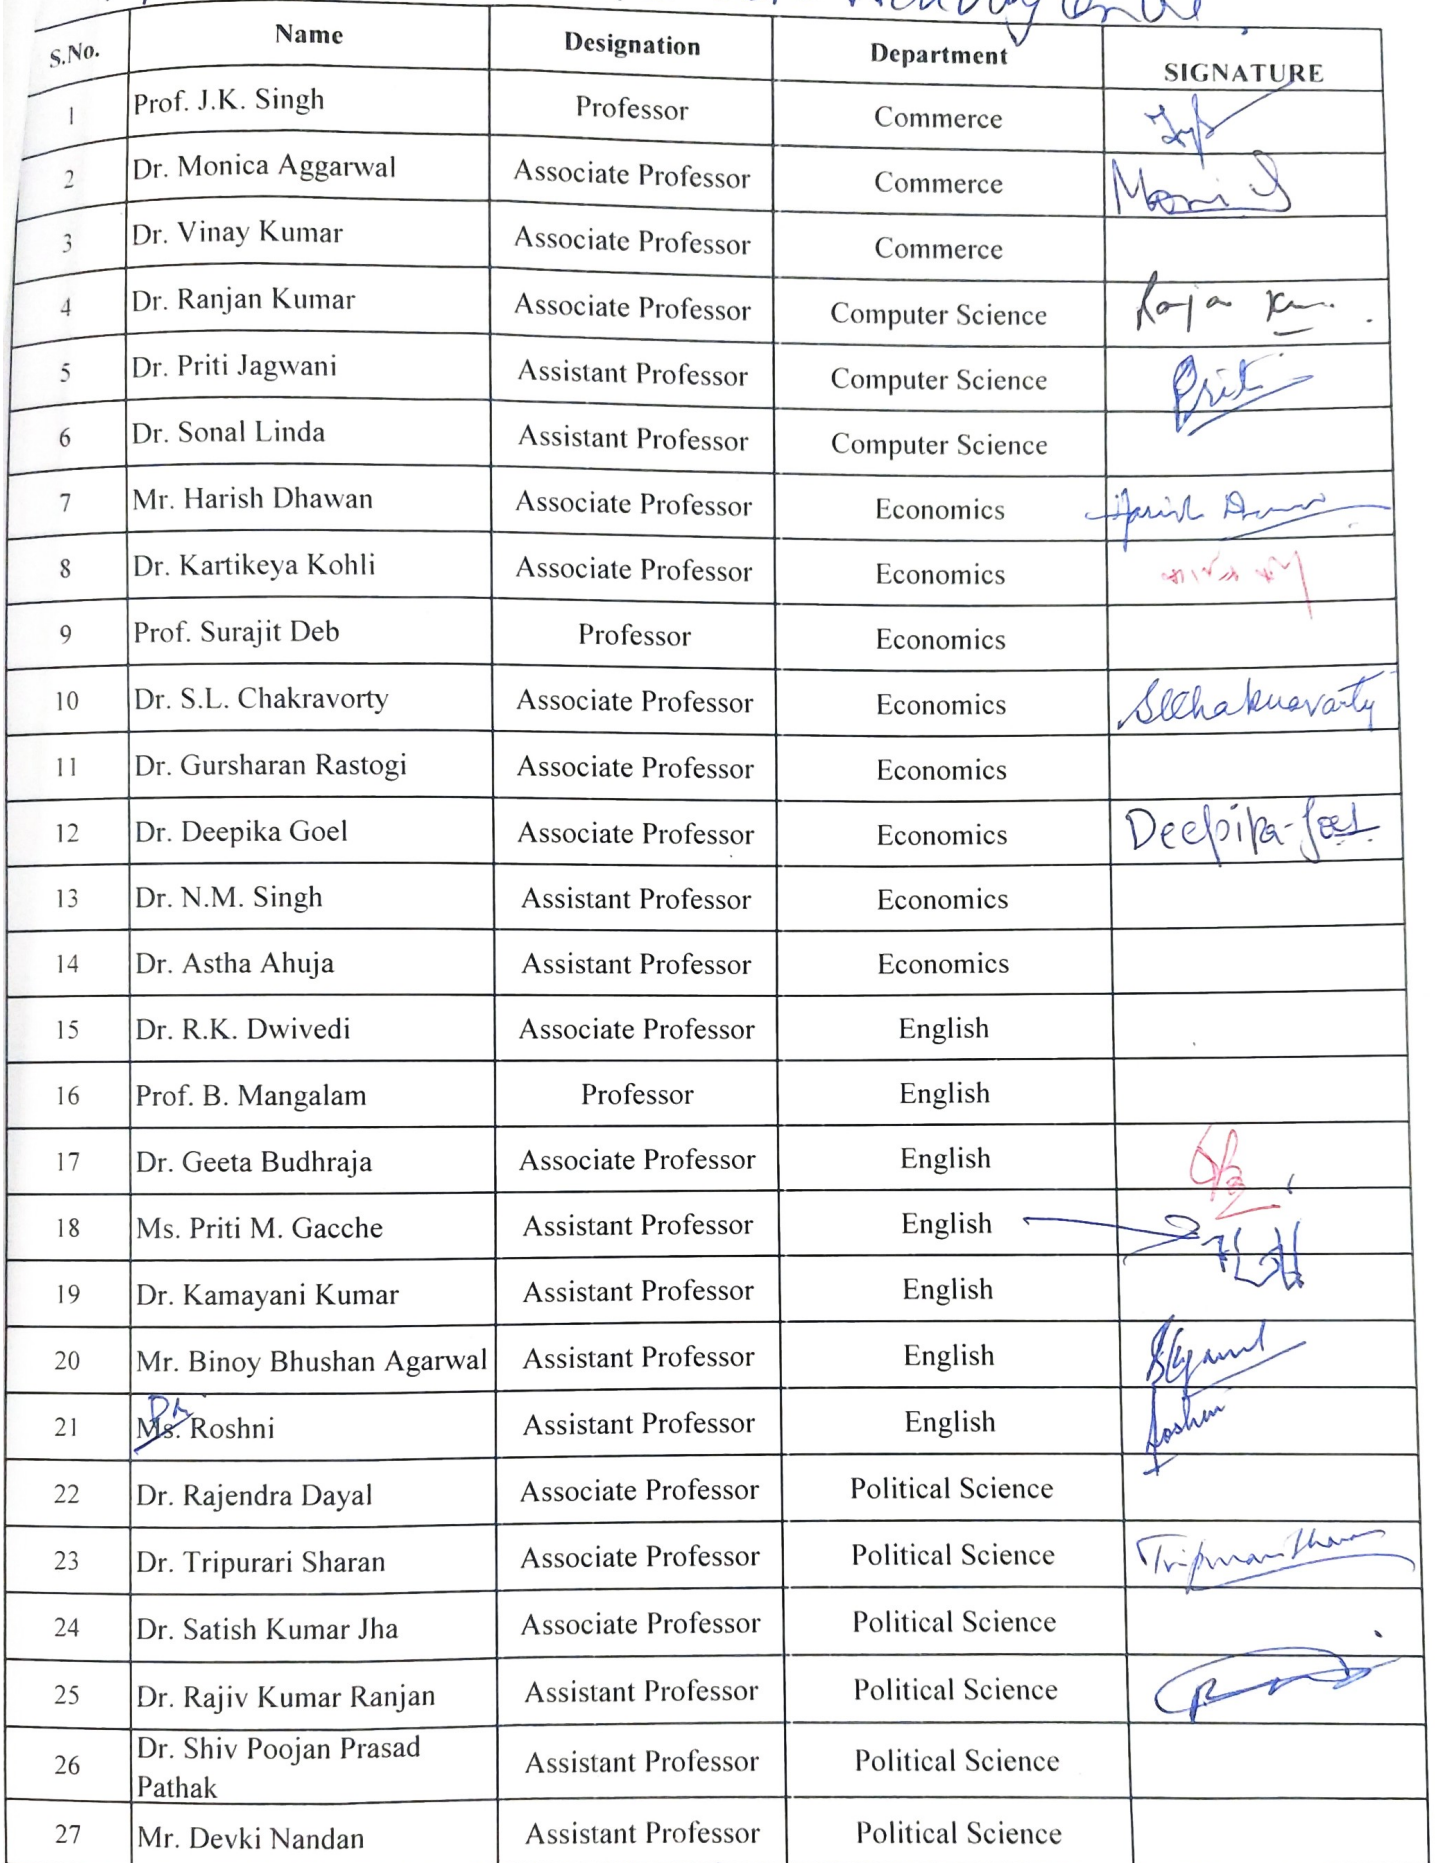 S.No. Name Designation Department SIGNATURE
1 Prof. J.K. Singh Professor Commerce
2 Dr. Monica Aggarwal Associate Professor Commerce
3 Dr. Vinay Kumar Associate Professor Commerce
4 Dr. Ranjan Kumar Associate Professor Computer Science
5 Dr. Priti Jagwani Assistant Professor Computer Science Priti
6 Dr. Sonal Linda Assistant Professor Computer Science
7 Mr. Harish Dhawan Associate Professor Economics Harish
8 Dr. Kartikeya Kohli Associate Professor Economics
9 Prof. Surajit Deb Professor Economics
10 Dr. S.L. Chakravorty Associate Professor Economics SLChakravarty
11 Dr. Gursharan Rastogi Associate Professor Economics
12 Dr. Deepika Goel Associate Professor Economics Deepika Goel
13 Dr. N.M. Singh Assistant Professor Economics
14 Dr. Astha Ahuja Assistant Professor Economics
15 Dr. R.K. Dwivedi Associate Professor English
16 Prof. B. Mangalam Professor English
17 Dr. Geeta Budhraja Associate Professor English
18 Ms. Priti M. Gacche Assistant Professor English
19 Dr. Kamayani Kumar Assistant Professor English
20 Mr. Binoy Bhushan Agarwal Assistant Professor English
Dr
21 Ms. Roshni Assistant Professor English Roshni
22 Dr. Rajendra Dayal Associate Professor Political Science
23 Dr. Tripurari Sharan Associate Professor Political Science
24 Dr. Satish Kumar Jha Associate Professor Political Science
25 Dr. Rajiv Kumar Ranjan Assistant Professor Political Science
26 Dr. Shiv Poojan Prasad Assistant Professor Political Science
Pathak
27 Mr. Devki Nandan Assistant Professor Political Science